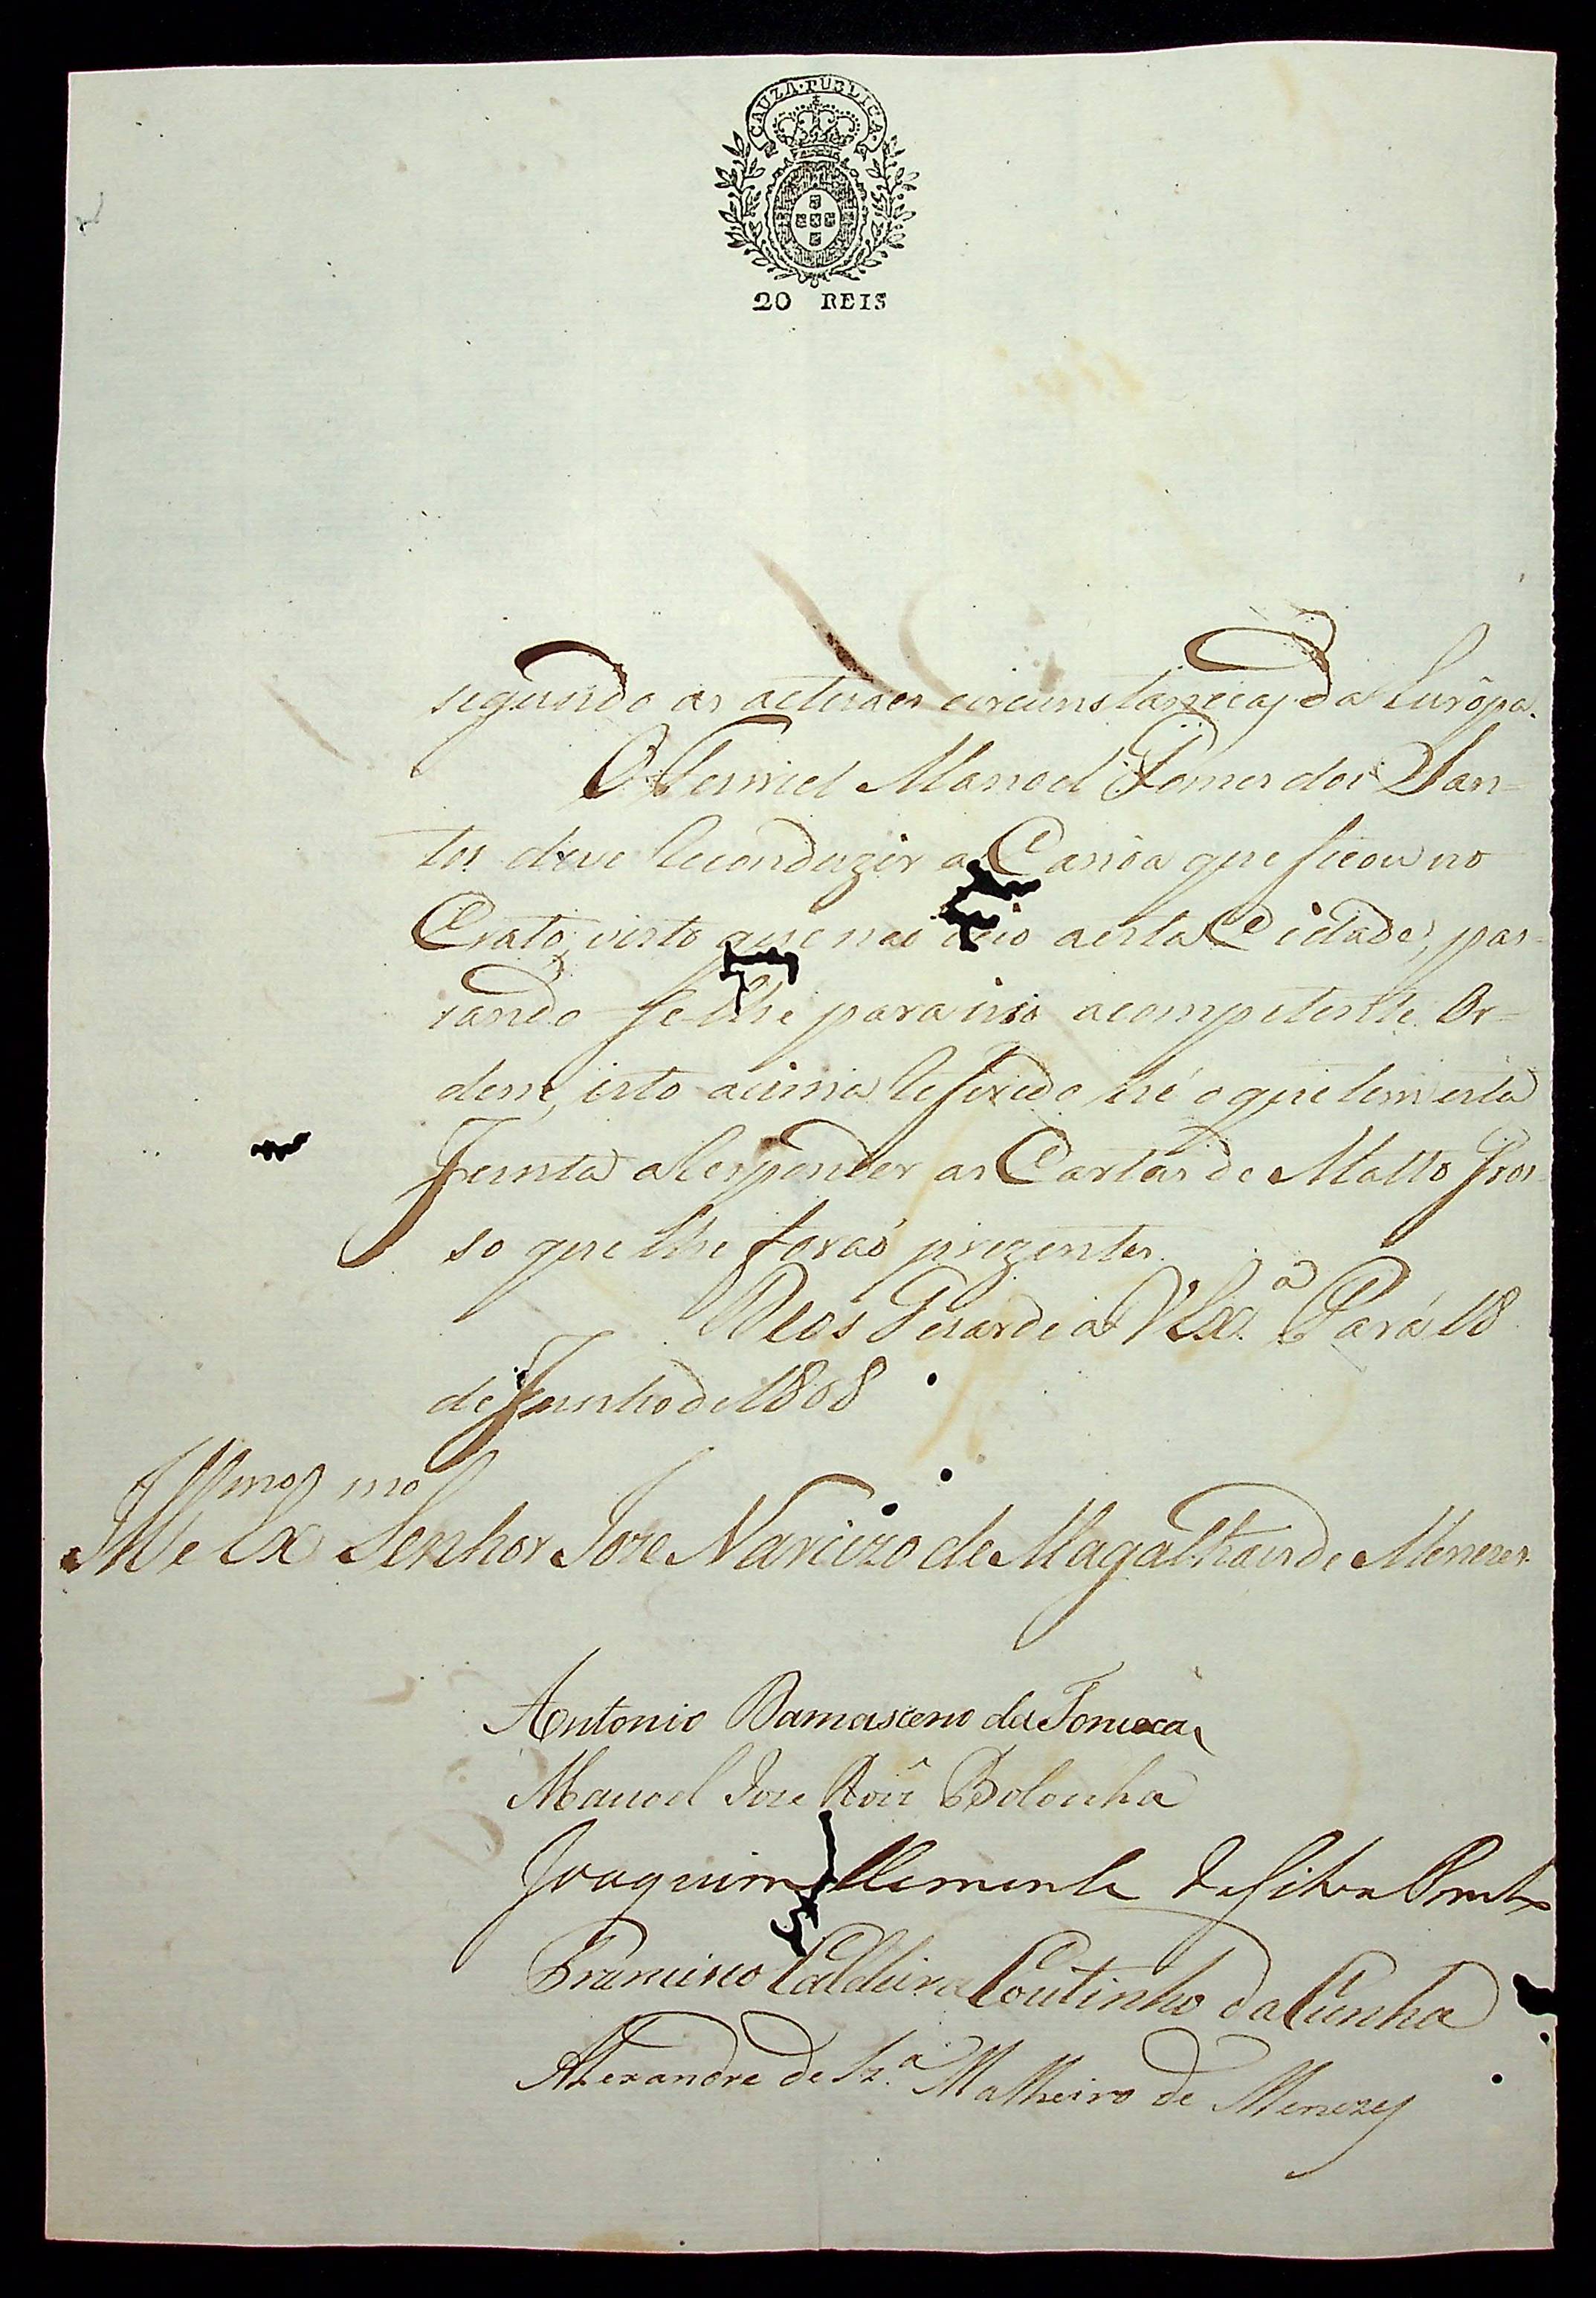 CAUZA PUBLICA
20 REIS
segundo as actuaes circunstancias da Európa.
O Furriel Manoel Gomes dos San=
tos deve Reconduzir a Canôa que ficou no
Crato, visto que nao veio a esta Cidade, pas=
sando se lhe para isso a competente Or=
dem, isto acima Referido hé o que tem esta
Junta a Responder as Cartas de Matto Gros=
so que lhe foraõ prezentes.
Deos Guarde a V Exª Pará 18
de Junho de 1808
Illmo e Exmo Senhor Joze Narcizo de Magalhaens de Menezes.
Antonio Damasceno da Fonseca
Manoel Joze Roiz Bolonha
Joaquim Clemente da Silva
Francisco Caldeira Coutinho da Cunha
Alexandre de Sz.ª Malheiro de Menezes